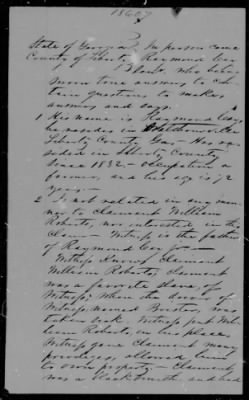 18607
State of Georgia In person came
County of Liberty Raymond Cay
Senr, who being
more time answers to cer-
tain questions to makes
answers and says.
1 His name is Raymond Cay,
he resides in Walthourville
Liberty County, Ga. Has re-
sided in Liberty County
since 1832 – occupation a
farmer, and his age is 72
years –
2 Is not related in any man-
ner to Claimant William
Roberts, nor interested in the
claim – Witness is the father
of Raymond Cay Jr –
Witness knows Claimant
William Roberts, Claimant
was a favorite slave, of
Witness; When the driver of
Witness, named
taken sick. Witness put Wil-
liam Roberts, in his place
Witness gave Claimant many
privileges, allowed him
to own property – Claimant
was a blacksmith, and had